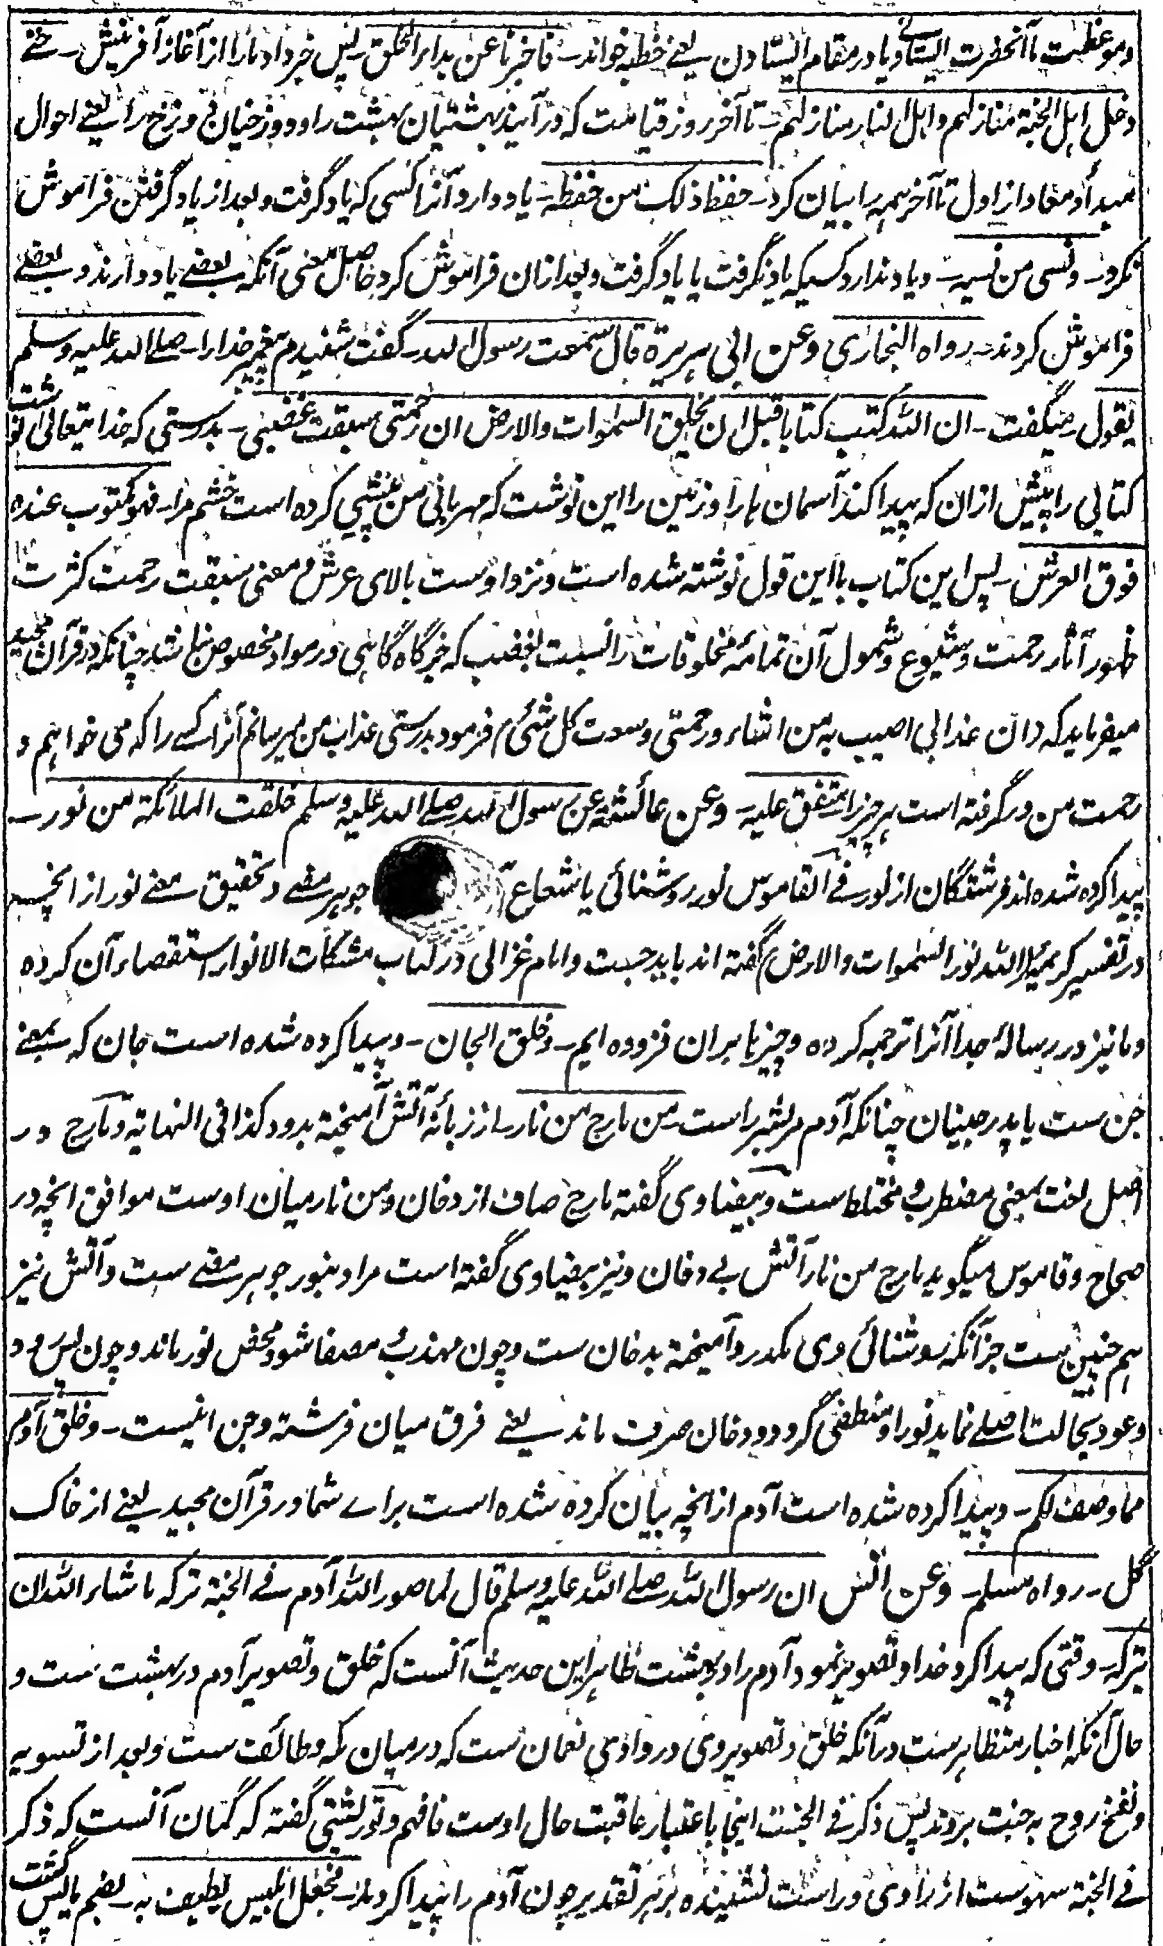 وموعظت ما آنحضرت ایستادنی یا در مقام ایستادن یعنی خطبه خواند ـ فاخبرنا عن بدء الخلق ـ پس خبر داد ما را از آغاز آفرینش ـ حتی
دخل اهل الجنة منازلهم و اهل النار منازلهم ـ تا آخر روز قیامت که در آیند بهشتیان بهشت را و دوزخیان دوزخ را یعنی احوال
مبدأ و معاد از اول تا آخر همه را بیان کرد ـ حفظ ذلک من حفظه ـ یاد دارد آنرا کسی که یاد گرفت و بعد از یاد گرفتن فراموش
نکرد ـ و نسی من نسیه ـ و یاد ندارد کسیکه یاد نگرفت یا یاد گرفت و بعد ازان فراموش کرد حاصل معنی آنکه بعضے یاد دارند و بعضے
فراموش کردند ـ رواه البخاری وعن ابی هریرة قال سمعت رسول الله ـ گفت شنیدم پیغمبر خدا را ـ صلے الله علیه وسلم
یقول ـ میگفت ـ ان الله کتب کتابا قبل ان یخلق السموات والارض ان رحمتی سبقت غضبی ـ بدرستی که خدایتعالی نوشت
کتابی را پیش ازان که پیدا کند آسمان ها را و زمین را این نوشت که مهربانی من پیشی کرده است خشم مرا ـ فهو مکتوب عنده
فوق العرش ـ پس این کتاب یا این قول نوشته شده است و نزد اوست بالای عرش و معنی سبقت رحمت کثرت
ظهور آثار رحمت و شیوع و شمول آن تمامه مخلوقات را نسبت بغضب که خبر گاه گاهی و در مواد مخصوص نباشد چنانکه در قرآن مجید
میفرماید که ان عذابی اصیب به من اشاء و رحمتی وسعت کل شئ م فرمود بدرستی عذاب من میرسانم آنرا کسے را که می خواهم و
رحمت من در گرفته است هر چیز را متفق علیه ـ وعن عائشة عن رسول الله صلے الله علیه وسلم خلقت الملائکة من نور ـ
پیدا کرده شده اند فرشتگان از نور فے القاموس نور روشنائی یا شعاع آن جوهر مضے و تحقیق معنے نور از انچه
در تفسیر کریمه الله نور السموات والارض گفته اند باید جست و امام غزالی در کتاب مشکات الانوار استقصاء آن کرده
و ما نیز در رساله جدا آنرا ترجمه کرده و چیزها بران فزوده ایم ـ و خلق الجان ـ و پیدا کرده شده است جان که بمعنے
جن ست یا پدر جنیان چنانکه آدم مر بشر راست ـ من مارج من نار ـ از زبانه آتش آمیخته بدود کذا فی النهایة و مارج در
اصل لغت بمعنی مضطرب و مختلط ست و بیضاوی گفته مارج صاف از دخان و من نار میان اوست موافق انچه در
صحاح و قاموس میگوید مارج من نار آتش بے دخان و نیز بیضاوی گفته است مراد بنور جوهر مضے ست و آتش نیز
هم چنین ست جز آنکه روشنائی وی مکدر و آمیخته بدخان ست و چون مهذب و مصفا شود محض نور ماند و چون پس رود
و عود بحالت اصلے نماید نور او منطفی گردد و دخان صرف ماند یعنے فرق میان فرشته و جن اینست ـ و خلق آدم
مما وصف لکم ـ و پیدا کرده شده است آدم از انچه بیان کرده شده است براے شما در قرآن مجید یعنے از خاک
گل ـ رواه مسلم ـ وعن انس ان رسول الله صلے الله علیه وسلم قال لما صور الله آدم فے الجنة ترکه ما شاء الله ان
یترکه ـ وقتی که پیدا کرد خدا و تصویر نمود آدم را در بهشت ظاهر این حدیث آنست که خلق و تصویر آدم در بهشت ست و
حال آنکه اخبار متظاهر ست در آنکه خلق و تصویر وی در وادی نعمان ست که در میان مکه و طائف ست و بعد از تسویه
و نفخ روح به جنت بردند پس ذکر فے الجنة اینجا باعتبار عاقبت حال اوست فافهم و تورپشتی گفته که گمان آنست که ذکر
فے الجنة سهوست از راوی و راست نشنیده بر هر تقدیر چون آدم را پیدا کردند ـ فجعل ابلیس یطیف به ـ بضم یا پس گشت